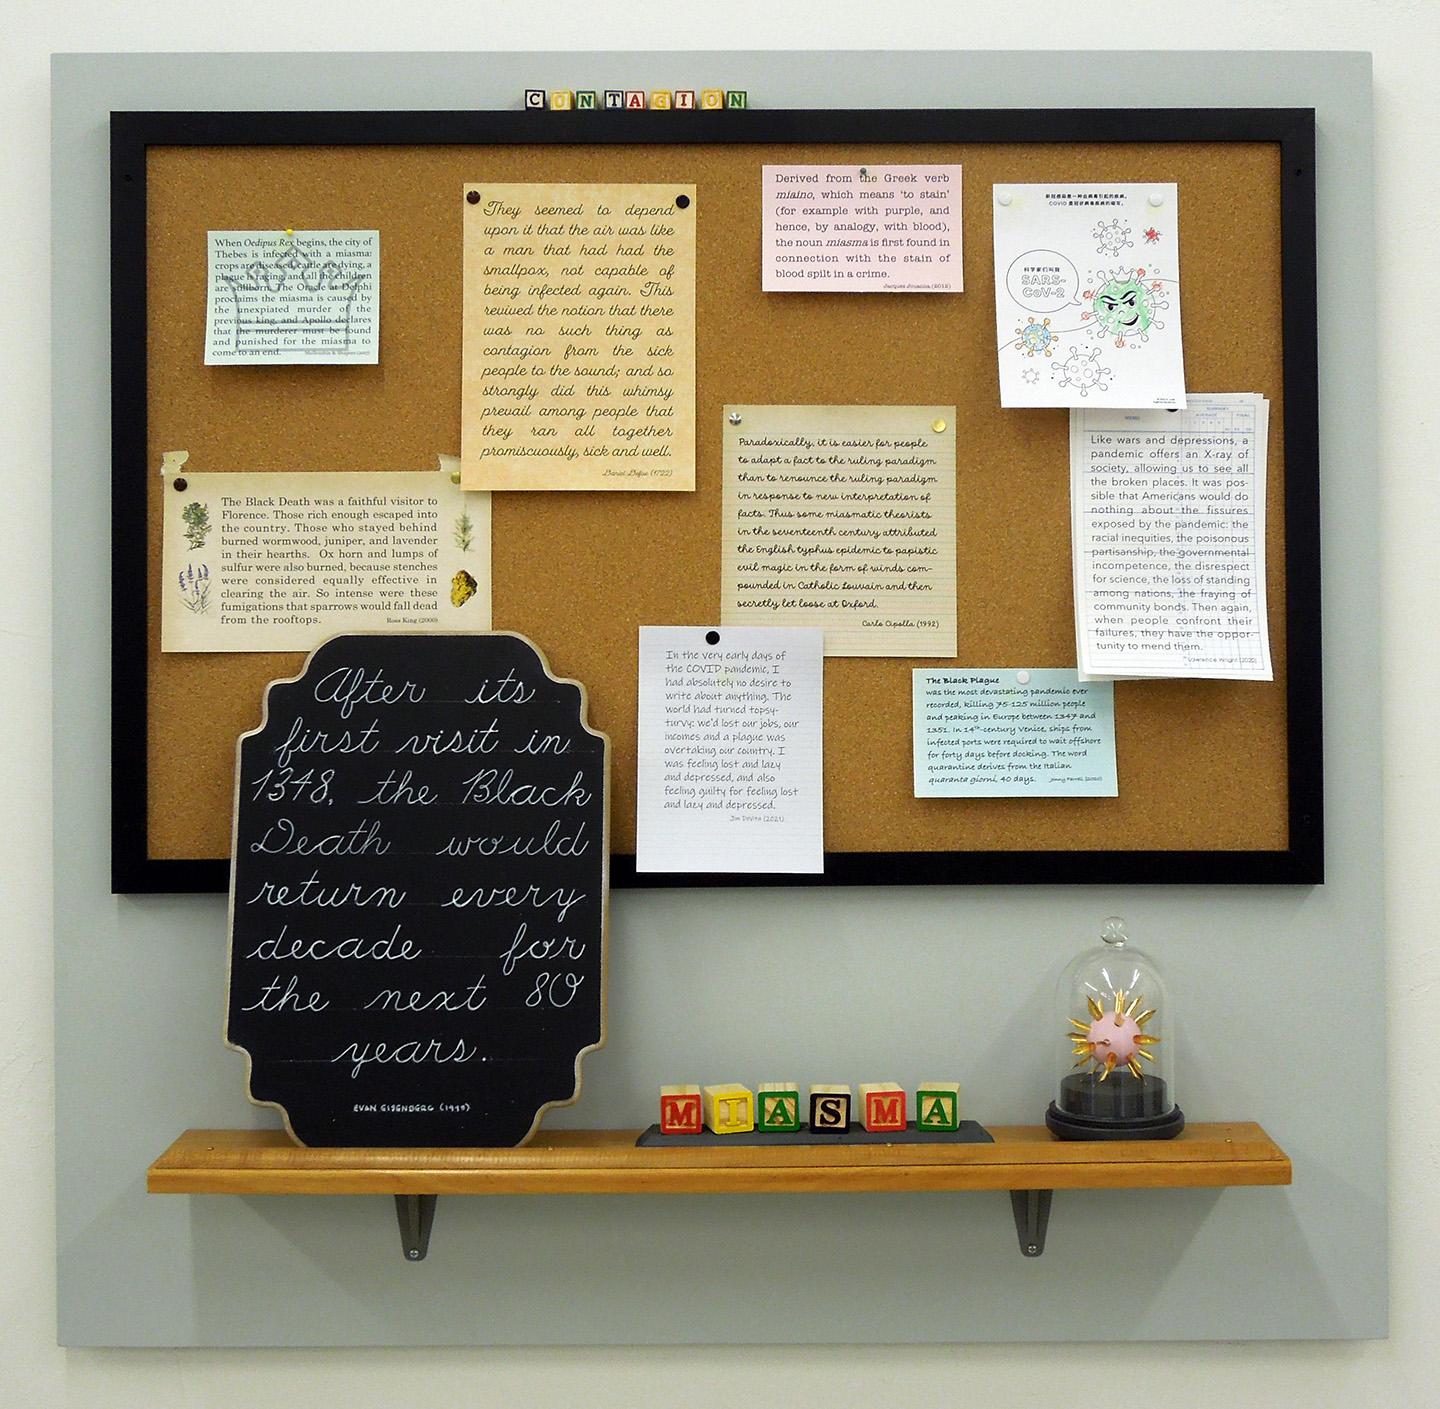 CONTAGION
When Oedipus Rex begins, the city of
Thebes is infected with a miasma:
crops are diseased, cattle are dying, a
plague is raging, and all the children
are stillborn. The Oracle at Delphi
proclaims the miasma is caused by
the unexpiated murder of the
previous king, and Apollo declares
that the murderer must be found
and punished for the miasma to
come to an end.
They seemed to depend
upon it that the air was like
a man that had had the
smallpox, not capable of
being infected again. This
revived the notion that there
was no such thing as
contagion from the sick
people to the sound; and so
strongly did this whimsy
prevail among people that
they ran all together
promiscuously, sick and well.
Daniel Defoe (1722)
Derived from the Greek verb
miaino, which means ‘to stain’
(for example with purple, and
hence, by analogy, with blood),
the noun miasma is first found in
connection with the stain of
blood spilt in a crime.
Jacques Jouanna (2012)
新冠感染是一种由病毒引起的疾病。
COVID 是冠状病毒疾病的缩写。
科学家们叫我
SARS-
CoV-2
The Black Death was a faithful visitor to
Florence. Those rich enough escaped into
the country. Those who stayed behind
burned wormwood, juniper, and lavender
in their hearths. Ox horn and lumps of
sulfur were also burned, because stenches
were considered equally effective in
clearing the air. So intense were these
fumigations that sparrows would fall dead
from the rooftops.
Ross King (2000)
Paradoxically, it is easier for people
to adapt a fact to the ruling paradigm
than to renounce the ruling paradigm
in response to new interpretation of
facts. Thus some miasmatic theorists
in the seventeenth century attributed
the English typhus epidemic to papistic
evil magic in the form of winds com-
pounded in Catholic Louvain and then
secretly let loose at Oxford.
Carlo Cipolla (1992)
MEMO
SUMMARY
AVERAGE
FINAL
Like wars and depressions, a
pandemic offers an X-ray of
society, allowing us to see all
the broken places. It was pos-
sible that Americans would do
nothing about the fissures
exposed by the pandemic: the
racial inequities, the poisonous
partisanship, the governmental
incompetence, the disrespect
for science, the loss of standing
among nations, the fraying of
community bonds. Then again,
when people confront their
failures, they have the oppor-
tunity to mend them.
Lawrence Wright (2020)
In the very early days of
the COVID pandemic, I
had absolutely no desire to
write about anything. The
world had turned topsy-
turvy: we'd lost our jobs, our
incomes and a plague was
overtaking our country. I
was feeling lost and lazy
and depressed, and also
feeling guilty for feeling lost
and lazy and depressed.
Jim DeVita (2021)
The Black Plague
was the most devastating pandemic ever
recorded, killing 75-125 million people
and peaking in Europe between 1347 and
1351. In 14th-century Venice, ships from
infected ports were required to wait offshore
for forty days before docking. The word
quarantine derives from the Italian
quaranta giorni, 40 days.
Jenny Farrell (2020)
After its
first visit in
1348, the Black
Death would
return every
decade for
the next 80
years.
EVAN EISENBERG (1998)
MIASMA